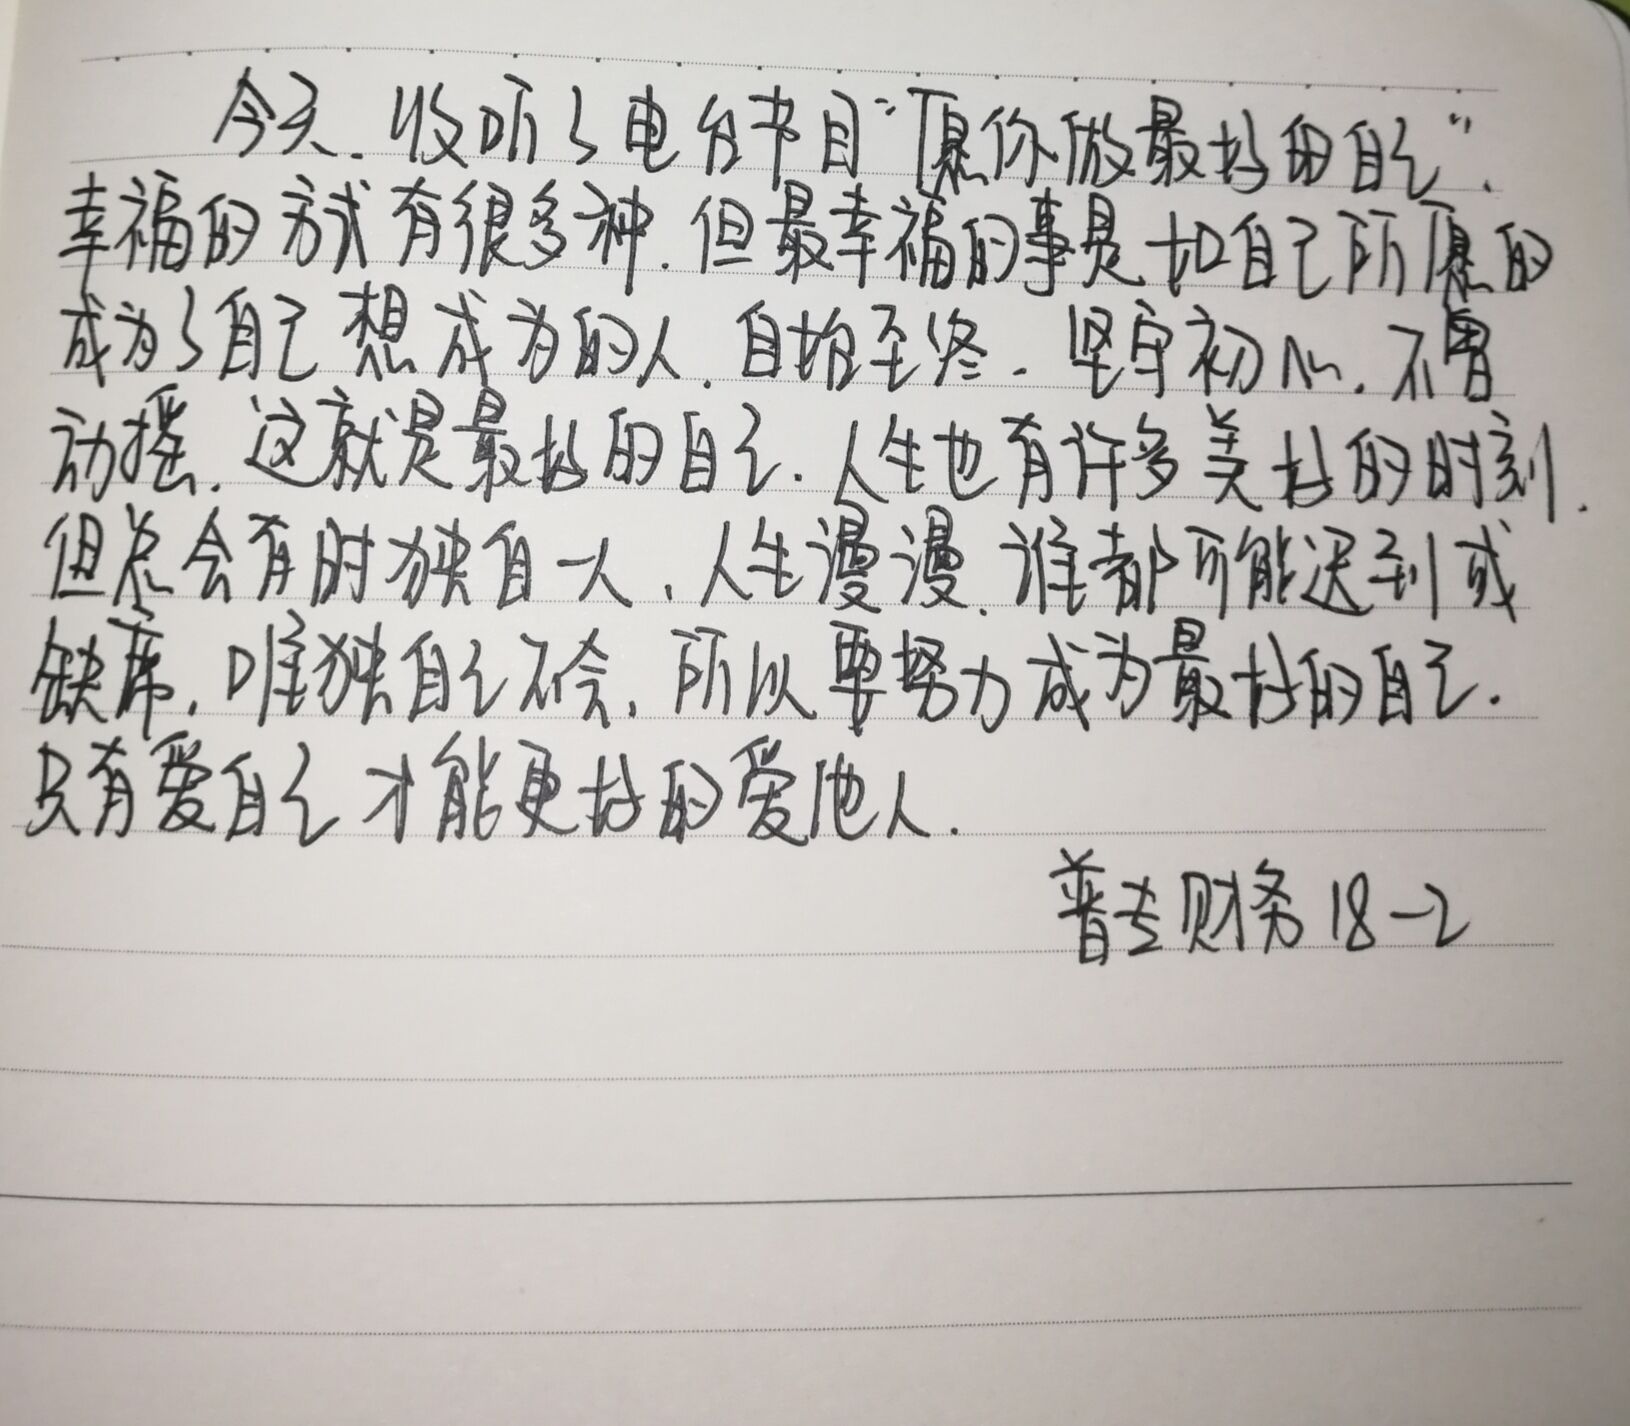 今天.收听了电台节目“愿你做最好的自己”.
幸福的方式有很多种.但最幸福的事是如自己所愿的
成为了自己想成为的人.自始至终.坚守初心.不曾
动摇.这就是最好的自己.人生也有许多美好的时刻.
但总会有时独自一人.人生漫漫.谁都可能迟到或
缺席.唯独自己不会.所以要努力成为最好的自己.
只有爱自己才能更好的爱他人.
普专财务18-2